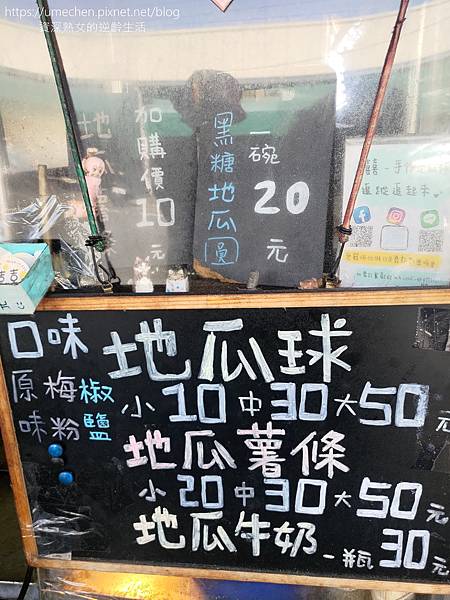 https://umechen.pixnet.net/blog
資深熟女的逆齡生活
地瓜薯條
加購價
10元
黑糖地瓜圓
一碗
20
元
口味
原味
梅粉
椒鹽
地瓜球
小10中30大50元
地瓜薯條
小20中30大50元
地瓜牛奶一瓶30元